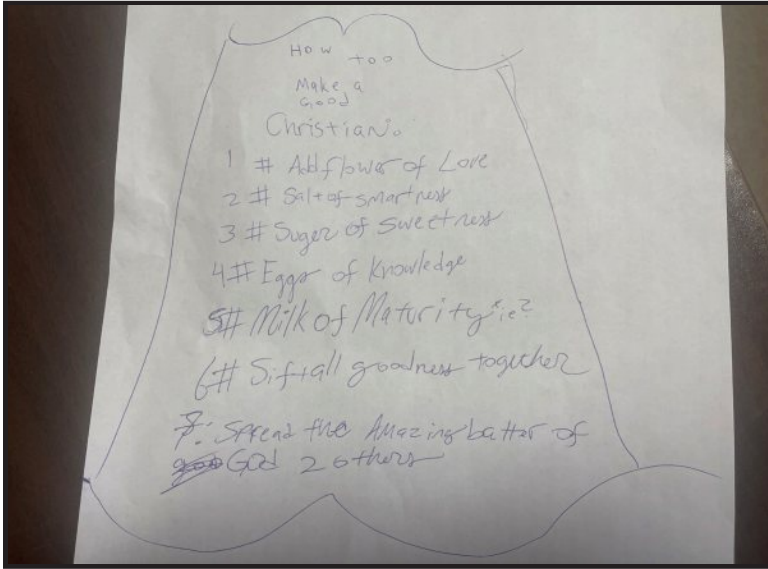 How too
Make a
Good
Christian:
1 # Add flower of Love
2 # Salt of smartness
3 # Suger of sweetness
4# Eggs of Knowledge
5# Milk of Maturity
6# Sift all goodness together
7: Spread the Amazing batter of
God 2 others